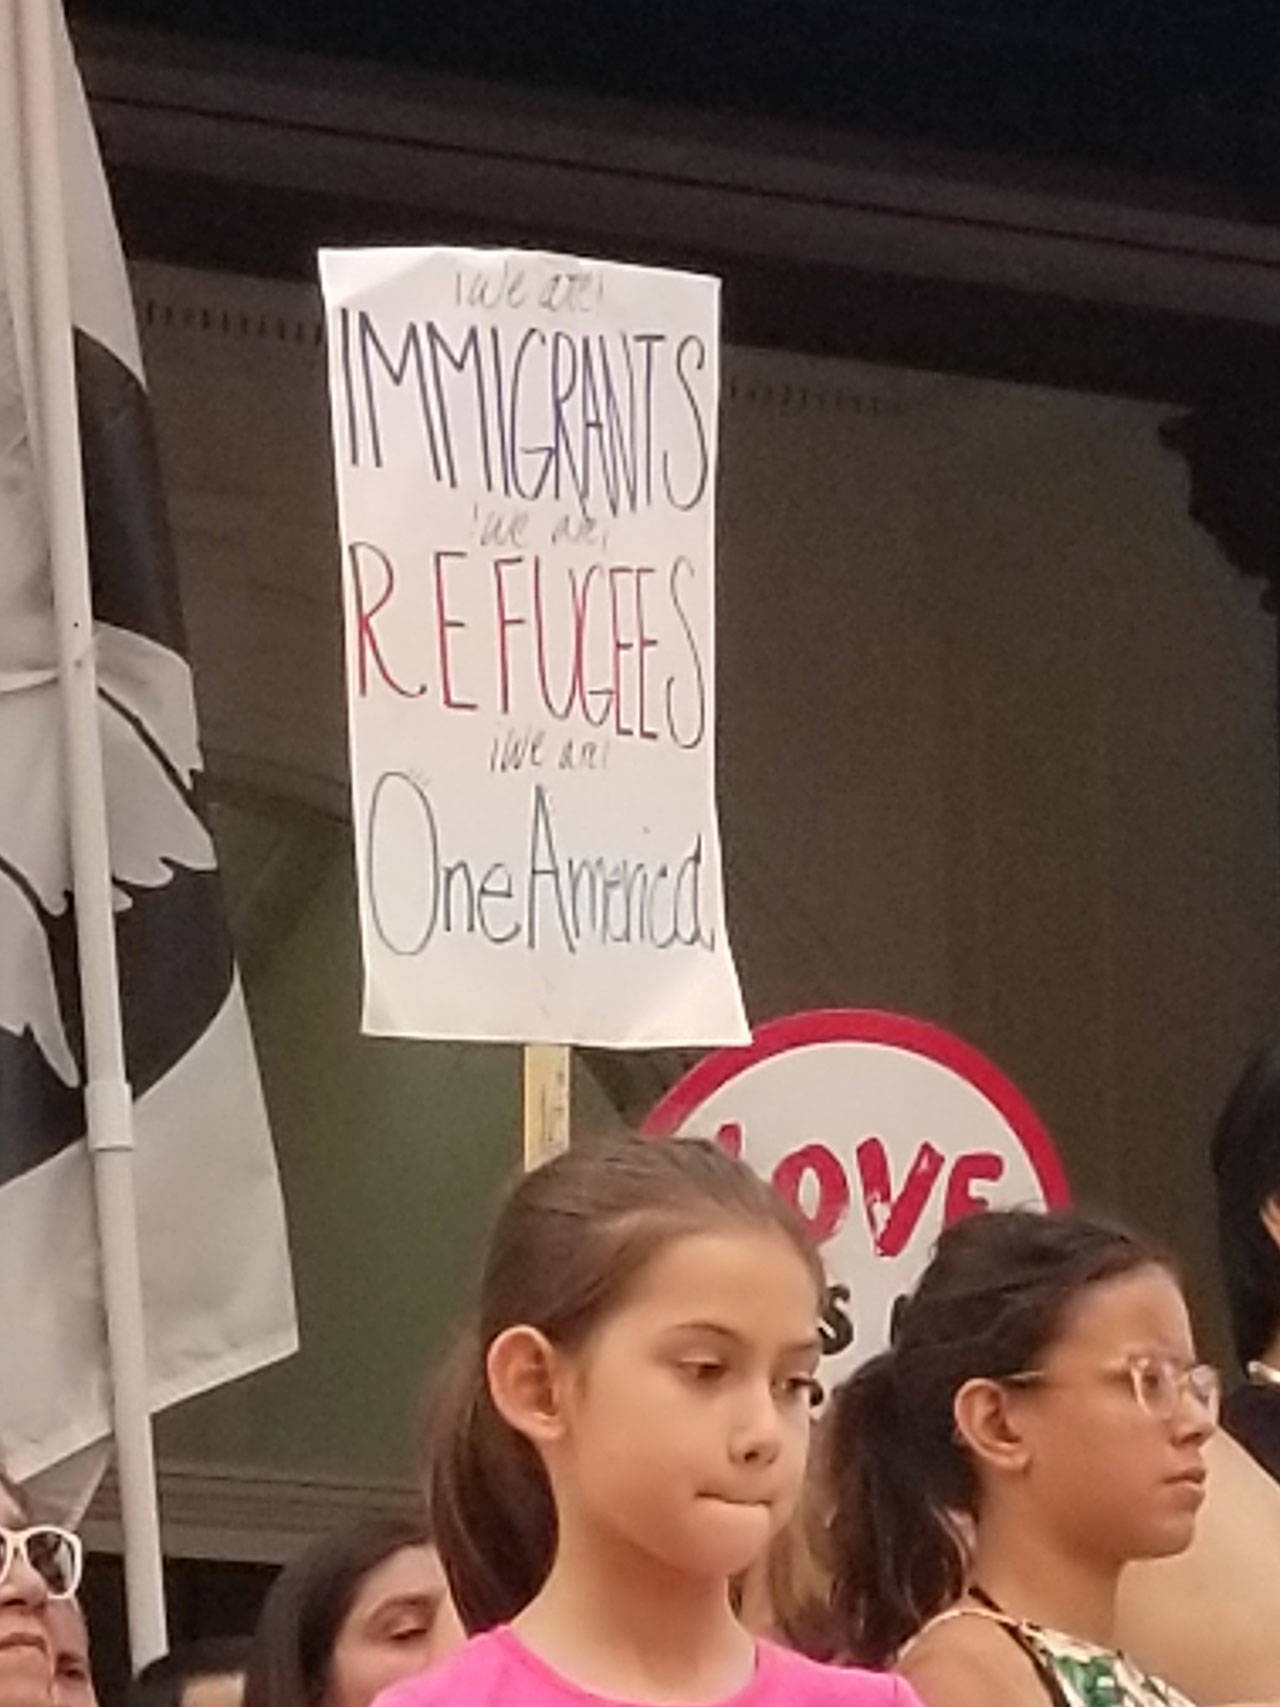 ¡We are!
IMMIGRANTS
¡We are!
REFUGEES
¡We are!
One America.
LOVE